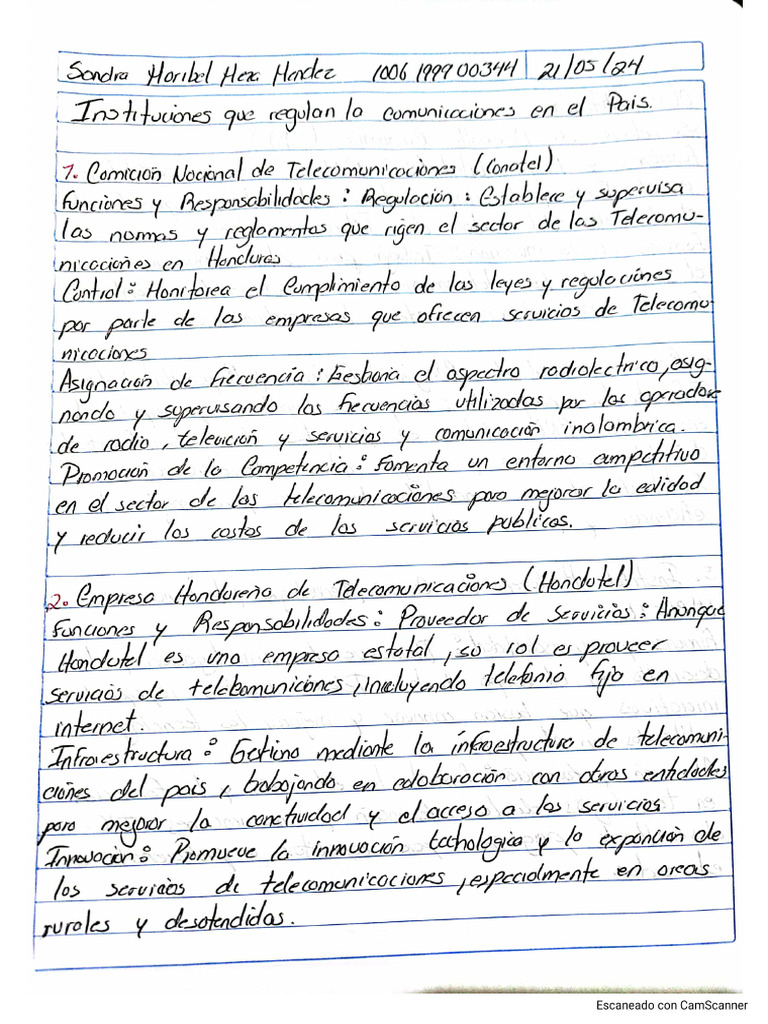 Sandra Maribel Meza Mendez 1006 1999 00344 21/05/24
Instituciones que regulan la comunicaciones en el Pais.
1. Comicion Nacional de Telecomunicaciones (Conatel)
Funciones y Responsabilidades: Regulación: Establece y supervisa
las normas y reglamentos que rigen el sector de las Telecomu-
nicaciones en Honduras
Control: Monitorea el Cumplimiento de las leyes y regulaciones
por parte de las empresas que ofrecen servicios de Telecomu
nicaciones
Asignación de Frecuencia: Gestiona el aspectro radiolectrico, asig-
nando y supervisando las frecuencias utilizadas por los operadores
de radio, televición y servicios y comunicación inalambrica.
Promoción de la Competencia: Fomenta un entorno competitivo
en el sector de las telecomunicaciones para mejorar la calidad
y reducir los costos de los servicios publicos.
2. Empresa Hondureña de Telecomunicaciones (Hondutel)
Funciones y Responsabilidades: Proveedor de Servicios:
Hondutel es una empresa estatal, su rol es proveer
servicios de telebomuniciones, Incluyendo telefonia fijo en
internet.
Infraestructura: mediante la infraestructura de telecomuni-
ciones del pais, babajando en colaboración con otras entidades
para mejorar la conctividad y el acceso a los servicios
Innovación: Promueve la innovación tachologica y la expanción de
los servicios de telecomunicaciones, especialmente en areas
rurales y desatendidas.
Escaneado con CamScanner